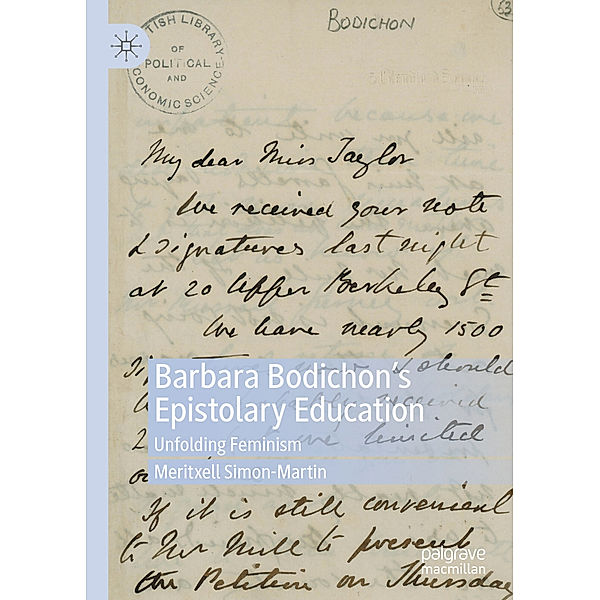 BODICHON
63
BRITISH LIBRARY
OF
POLITICAL
AND
ECONOMIC SCIENCE
My dear Miss Taylor
We received your note
& signatures last night
at 20 Upper Berkeley St
We have nearly 1500
now & should
received
2
limited
Barbara Bodichon's
Epistolary Education
Unfolding Feminism
Meritxell Simon-Martin
If it is still convenient
to Mr Mill to present
the Petition on Thursday
palgrave
macmillan